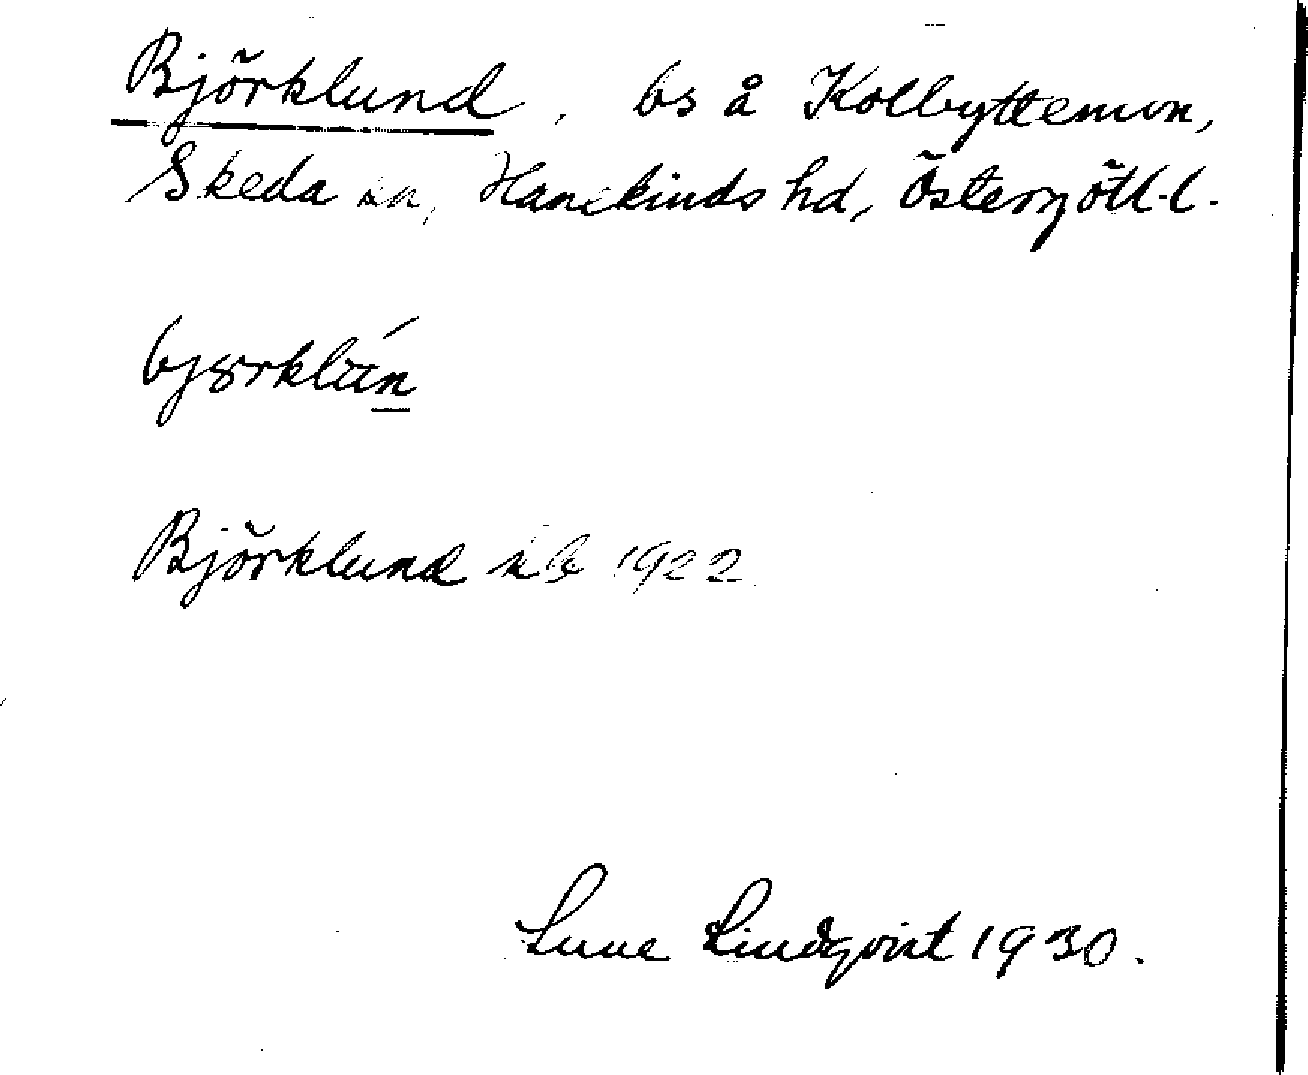 Björklund, bs å Kolbyttemon,
Skeda sn, Hanekinds hd, Östergötl.l.
Björklund kb 1922
Sune Lindqvist 1930.